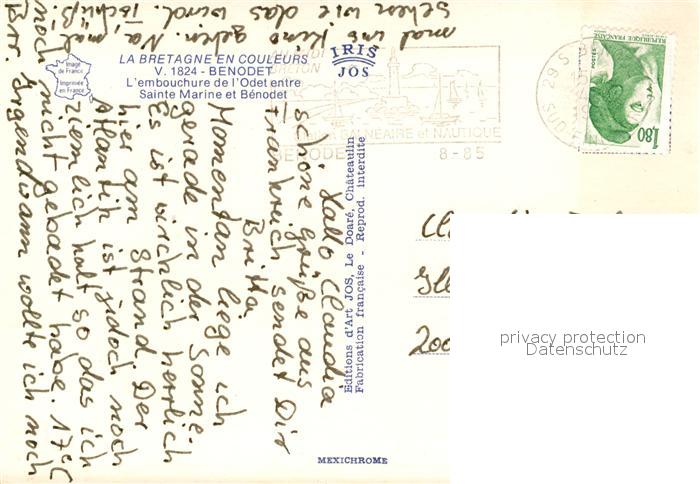 LA BRETAGNE EN COULEURS
V. 1824 - BENODET
L'embouchure de l'Odet entre
Sainte Marine et Bénodet
Image
de France
Imprimée
en France
IRIS
JOS
BALNÉAIRE et NAUTIQUE
BENODET
8-85
29 S
SUD
REPUBLIQUE FRANÇAISE
POSTES
1,80
Hallo Claudia
schöne Grüße aus
Frankreich sendet Dir
Britta.
Momentan liege ich
gerade in der Sonne.
Es ist wirchlich herrlich
hier am Strand. Der
Atlantik ist jedoch noch
ziemlich kalt so das ich
noch nicht gebadet habe. 17°C
Brr. Irgendwann wollte ich noch
mal ins Kino gehen. Na, mal
sehen wie das wird. Tschüß!
Editions d'Art JOS, Le Doaré, Châteaulin
Fabrication française - Reprod. interdite
MEXICHROME
200
privacy protection
Datenschutz